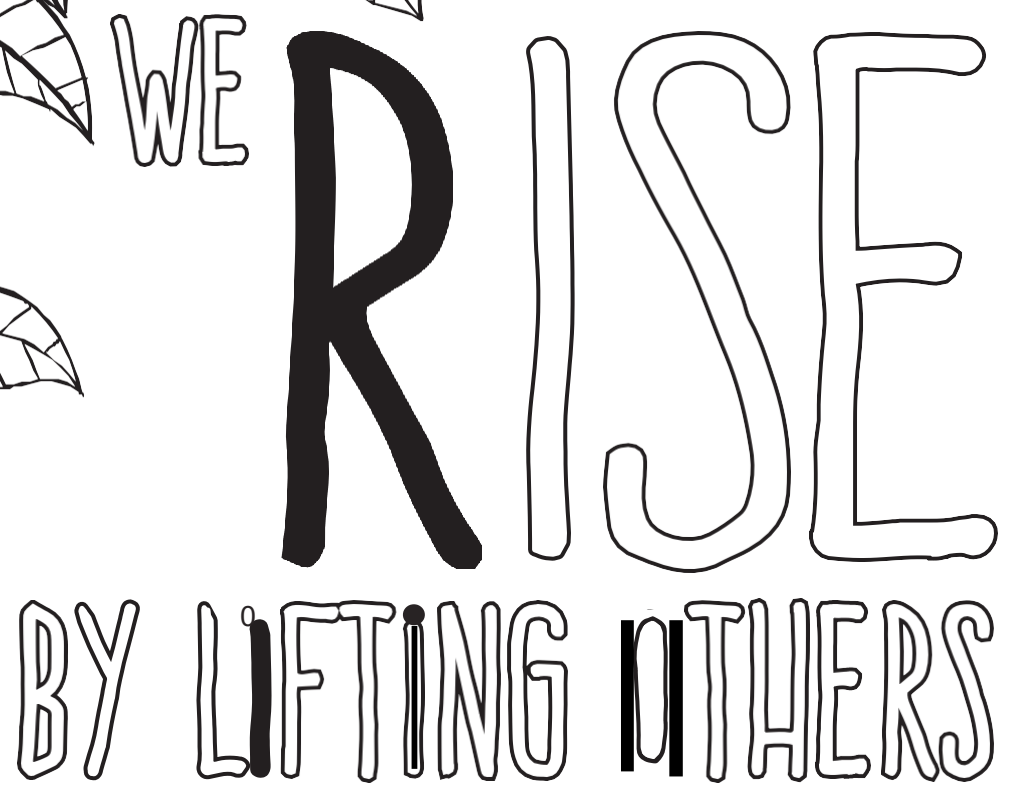 WE RISE
BY LiFTiNG OTHERS